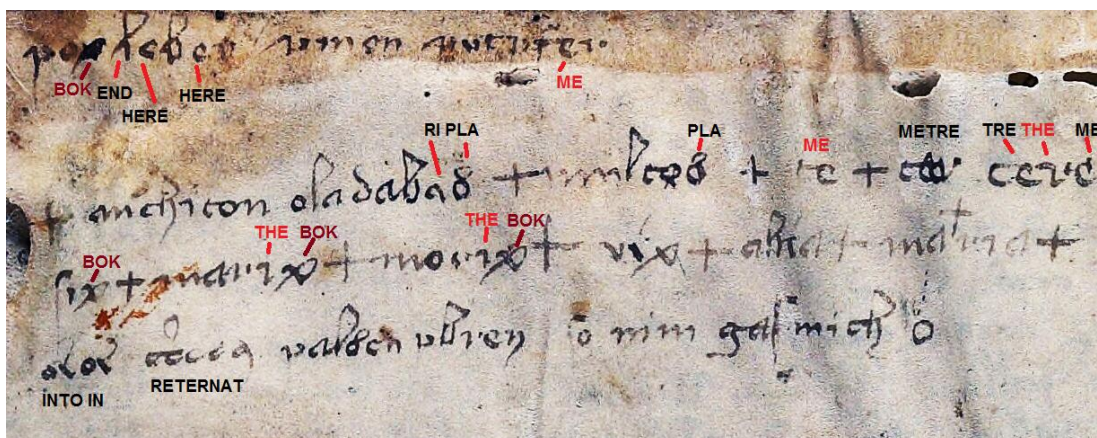 poxleber umen putrifer
BOK END HERE HERE ME
RI PLA PLA ME METRE TRE THE ME
+ anchiton oladabas + multos + te + cere
THE BOK THE BOK
BOK
six + marix + morix + vix + abia + maria +
valsen ubren so nim gas mich o
INTO IN RETERNAT